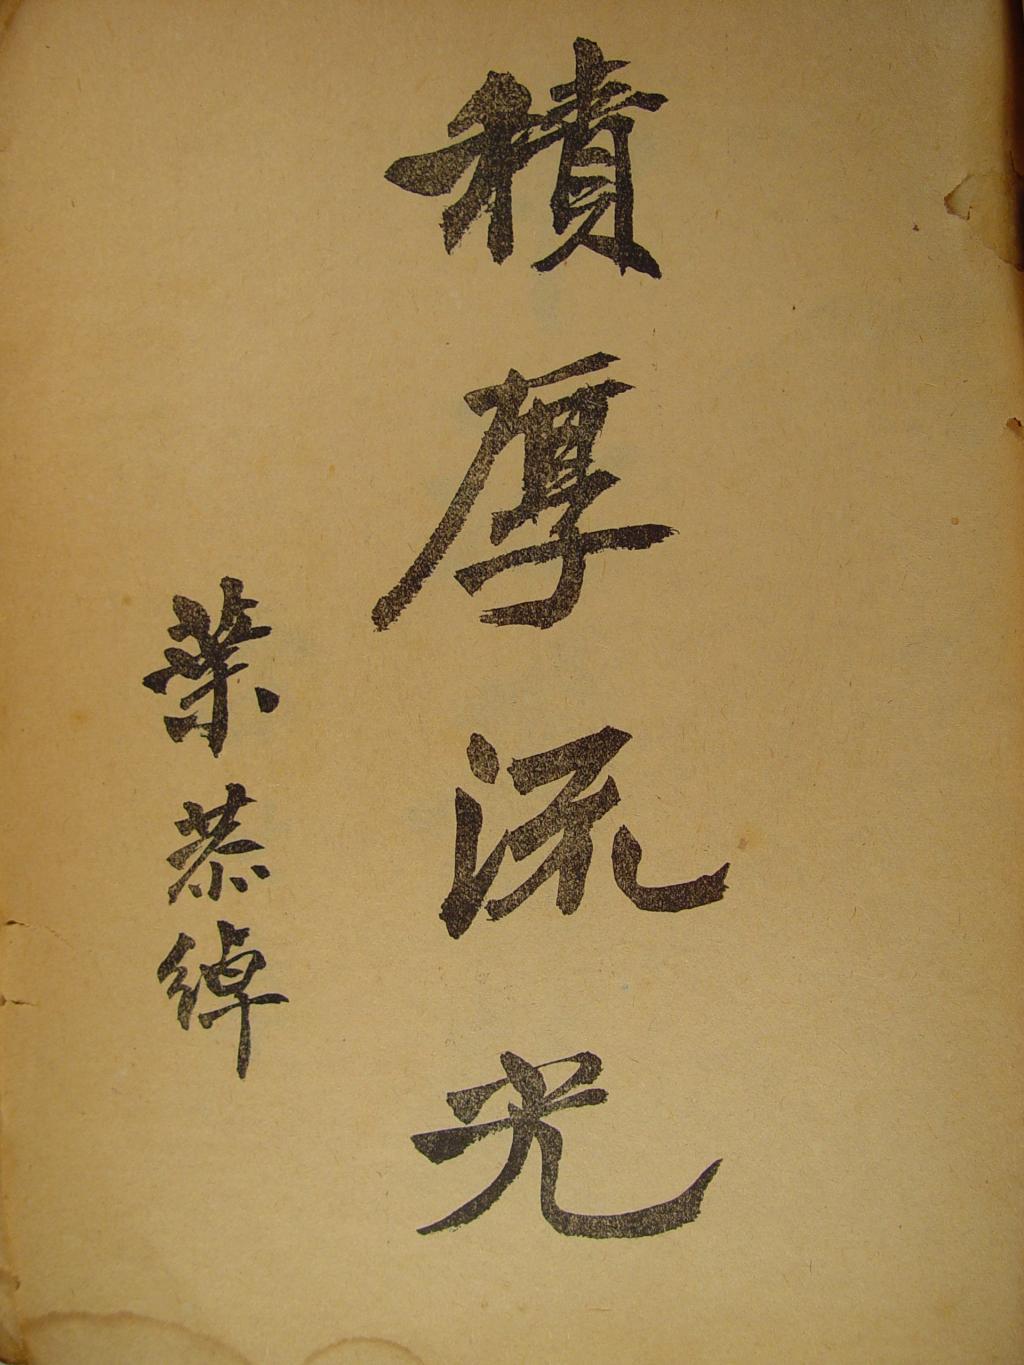 積厚流光
葉恭綽